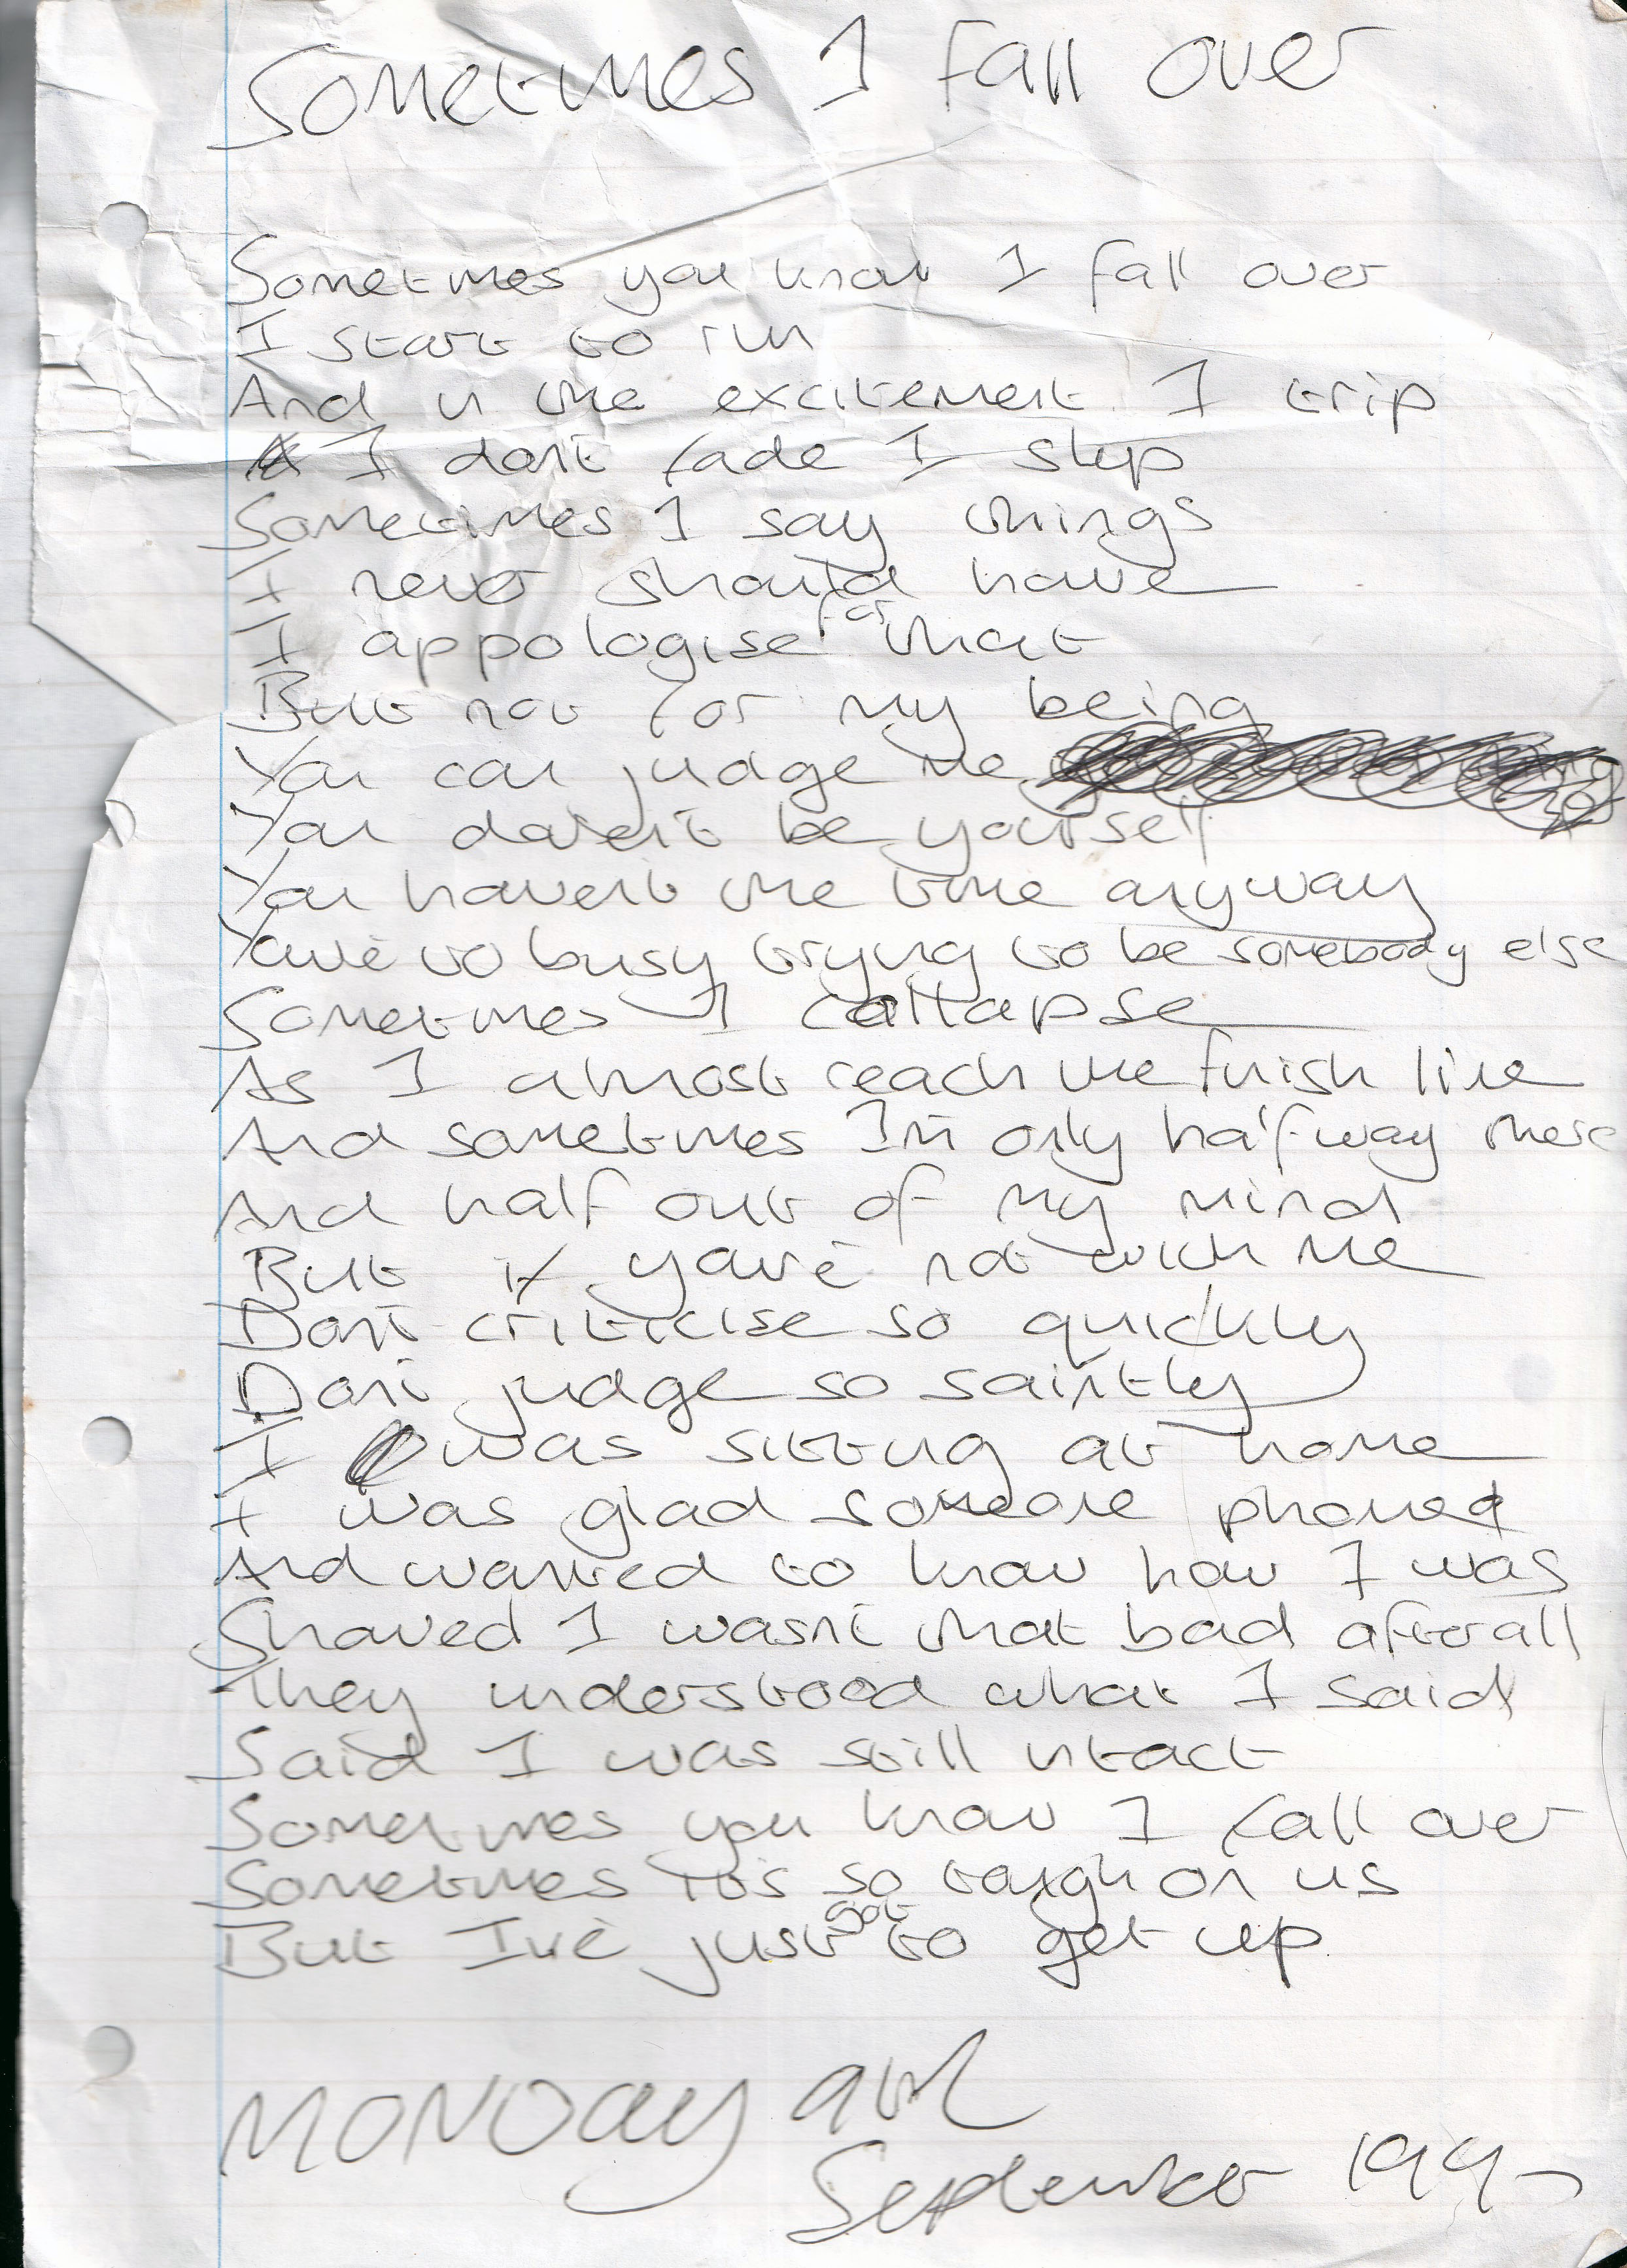 Sometimes I fall over
Sometimes you know I fall over
I start to run
And in the excitement I trip
I don't fade I slip
Sometimes I say things
I never should have
I appologise for that
But not for my being
You can judge me
You daren't be yourself
You haven't the time anyway
You're to busy trying to be somebody else
Sometimes I collapse
As I almost reach the finish line
And sometimes I'm only halfway there
And half out of my mind
But if you're not with me
Don't criticise so quickly
Don't judge so saintly
I was sitting at home
I was glad someone phoned
And wanted to know how I was
Showed I wasn't that bad afterall
They understood what I said
Said I was still intact
Sometimes you know I fall over
Sometimes it's so tough on us
But I've just got to get up
MONDay
September